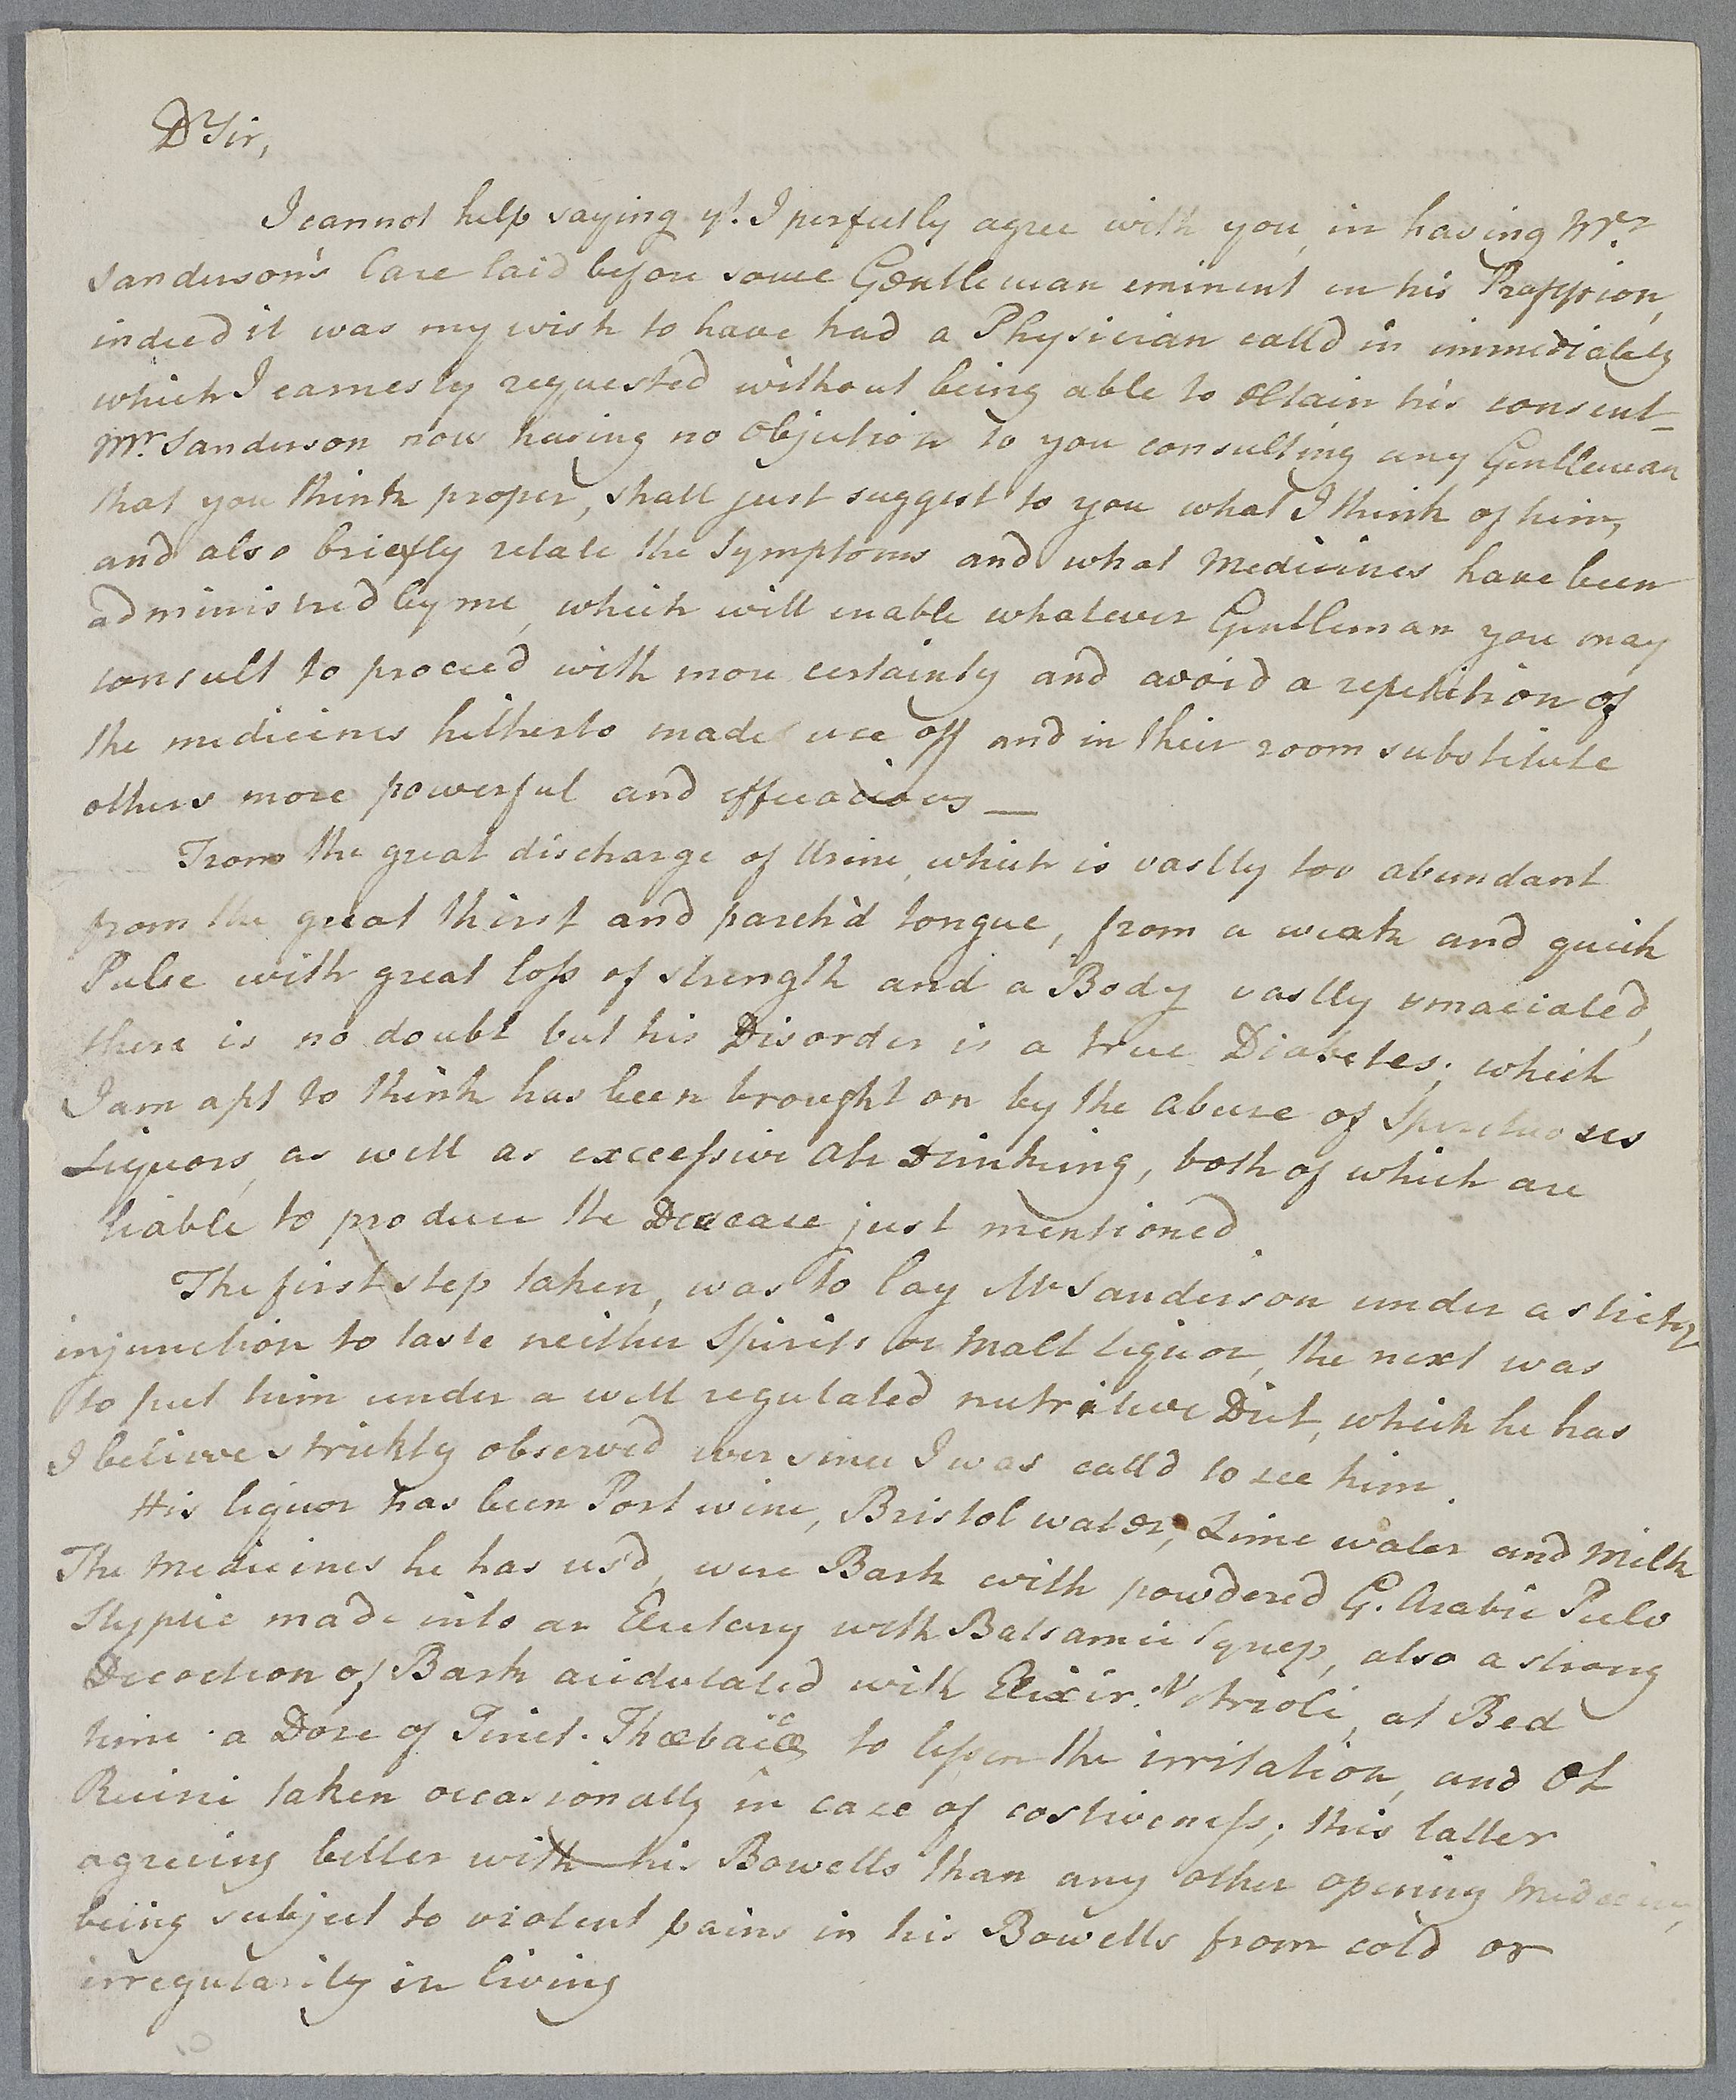 Dr Sir,
I cannot help saying yt. I perfectly agree with you, in having Mr.
Sanderson's Case laid before some Gentleman eminent in his Proffesion,
indeed it was my wish to have had a Physician call'd in immediately
which I earnesly requested without being able to obtain his consent_
Mr. Sanderson now having no objection to you consulting any Gentleman
that you think proper, shall just suggest to you what I think of him,
and also briefly relate the Symptoms and what Medicines have been
administred by me, which will enable whatever Gentleman you may
consult to proceed with more certainty and avoid a repetition of
the medicines hitherto made use off and in their room substitute
others more powerful and efficacious —
From the great discharge of Urine, which is vastly too abundant
from the great thirst and parch'd tongue, from a weak and quick
Pulse with great loss of strength and a Body vastly emaciated,
there is no doubt but his Disorder is a true Diabetes; which
I am apt to think has been brought on by the abuse of Spirituous
Liquors, as well as excessive Ale Drinking, both of which are
liable to produce the Disease just mentioned.
The first step taken, was to lay Mr Sanderson under a strickt
injunction to taste neither Spirits or Malt liquor, the next was
to put him under a well regulated nutritive Diet, which he has
I believe strickly observed ever since I was call'd to see him.
His liquor has been Port wine, Bristol water, Lime water and Milk
The Medicines he has us'd, were Bark with powdered G. Arabic Pulv
Styptic made into an Electary with Balsamic Syrup, also a strong
Decoction of Bark acidulated with Elixir. Vitrioli, at Bed
time a Dose of Tinct. Thæbaicæ to lessen the irritation, and Ol
Ricini taken occasionally in case of costiveness; this latter
agreeing better with his Bowells than any other opening Medicine,
being subject to violent pains in his Bowells from cold or
irregularity in living